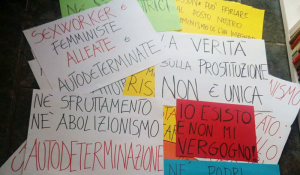 SEXWORKER
FEMMINISTE
ALLEATE
AUTODETERMINATE
PARLARE
AL POSTO NOSTRO
LA VERITÀ
SULLA PROSTITUZIONE
NON È UNICA
NÉ SFRUTTAMENTO
NÉ ABOLIZIONISMO
AUTODETERMINAZIONE
IO ESISTO
E NON MI
VERGOGNO!